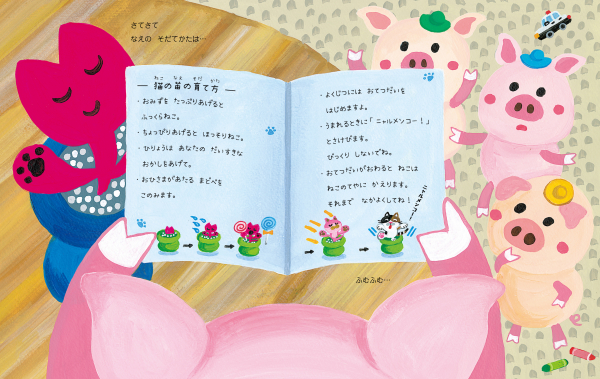 さてさて
なえの そだてかたは…
ねこ なえ そだ かた
― 猫の苗の育て方 ―
・おみずを たっぷりあげると
ふっくらねこ。
・ちょっぴりあげると ほっそりねこ。
・ひりょうは あなたの だいすきな
おかしをあげて。
・おひさまがあたる まどべを
このみます。
・よくじつには おてつだいを
はじめますよ。
・うまれるときに「ニャルメンコー！」
とさけびます。
びっくり しないでね。
・おてつだいがおわると ねこは
ねこのてやに かえります。
それまで なかよくしてね！
ニャルメンコー！
ふむふむ…